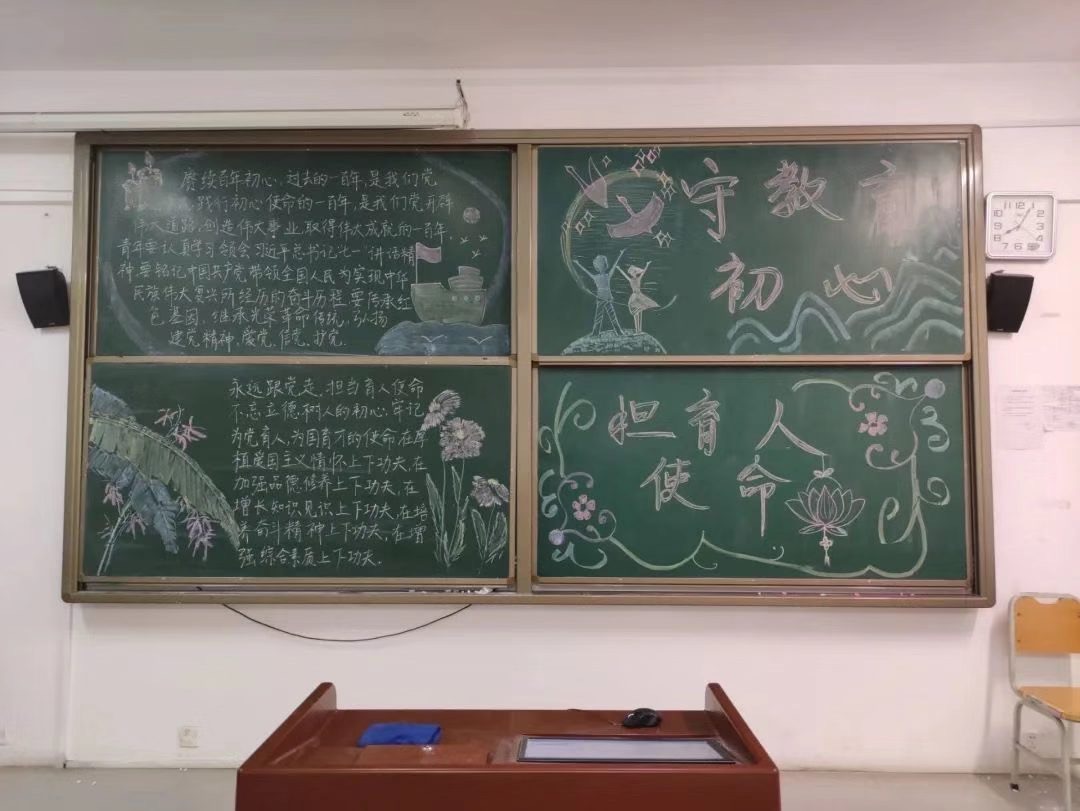 赓续百年初心，过去的一百年，是我们党
践行初心使命的一百年，是我们党开辟
伟大道路，创造伟大事业，取得伟大成就的一百年，
青年要认真学习领会习近平总书记七一讲话精
神，要铭记中国共产党带领全国人民为实现中华
民族伟大复兴所经历的奋斗历程，要传承红
色基因，继承光荣革命传统，弘扬
建党精神，爱党，信党，护党.
守教育
初心
永远跟党走，担当育人使命
不忘立德树人的初心，牢记
为党育人，为国育才的使命，在厚
植爱国主义情怀上下功夫，在
加强品德修养上下功夫，在
增长知识见识上下功夫，在培
养奋斗精神上下功夫，在增
强综合素质上下功夫.
担育人
使命